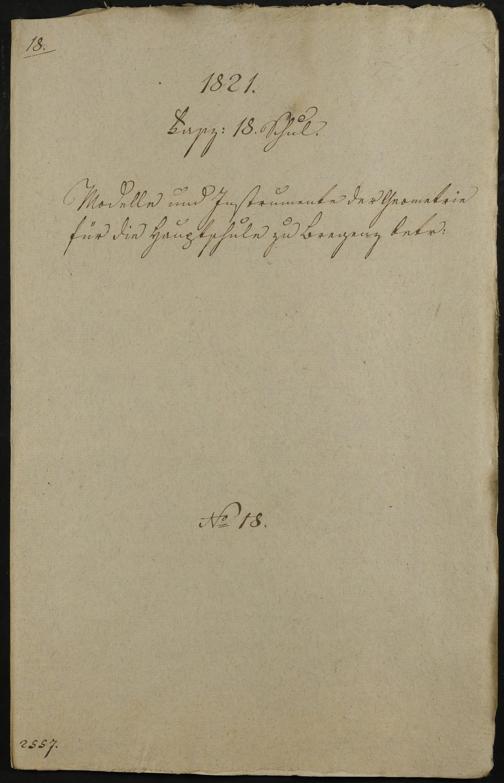 18.
1821.
Fasz: 18. Schul.
Modelle und Instrumente der Geometrie
für die Hauptschule zu Bregenz betr:
No 18.
2557.